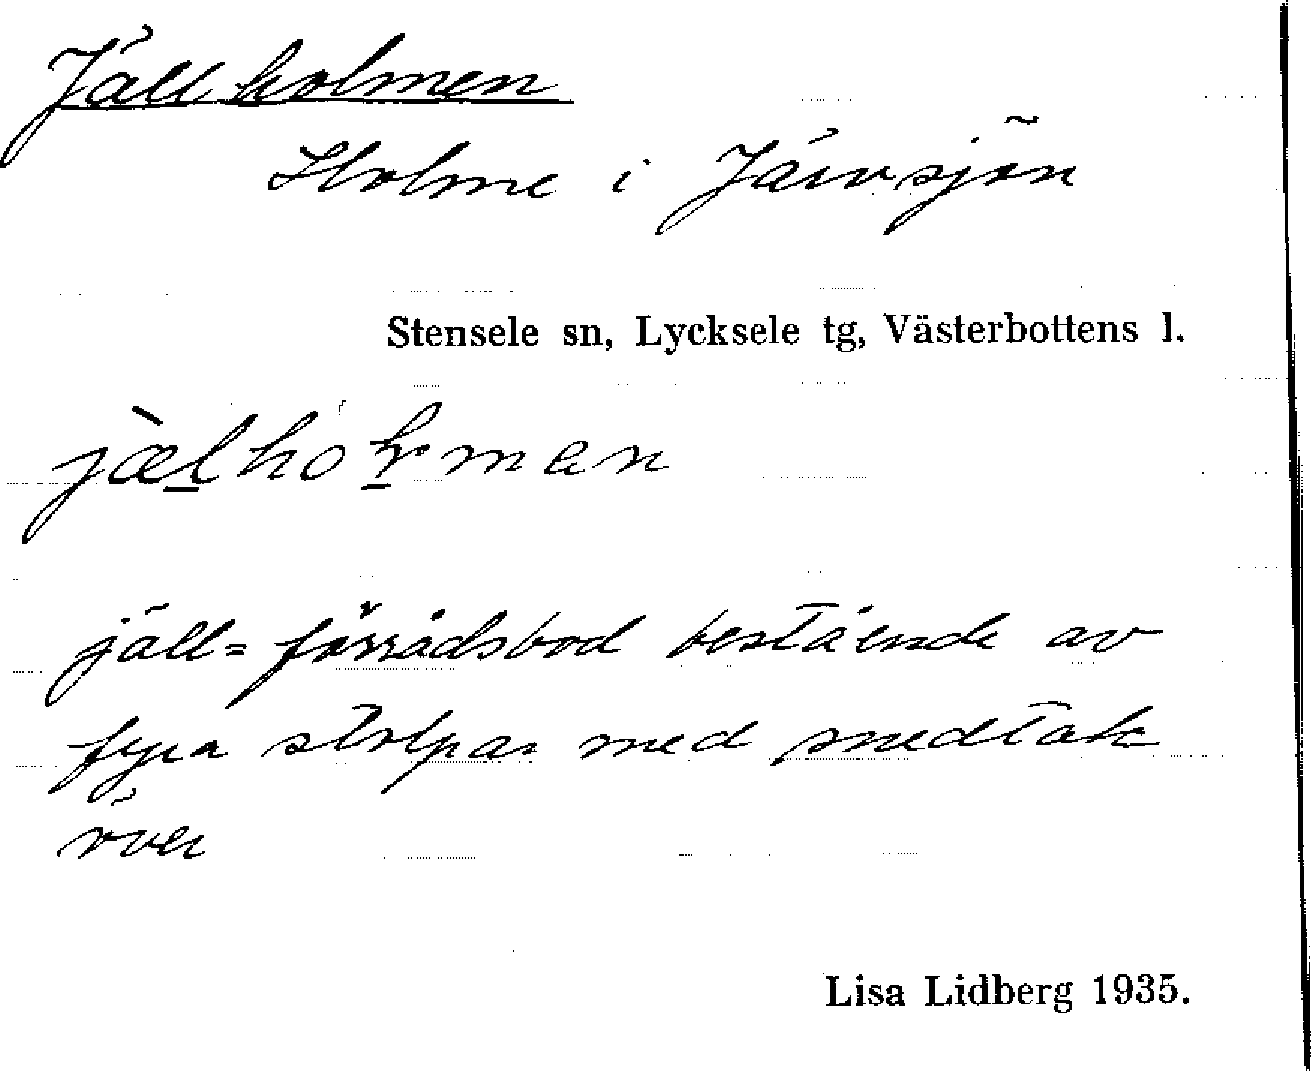 Jällholmen
Holme i Järvsjön
Stensele sn, Lycksele tg, Västerbottens l.
jällförrådsbod bestående av
fyra stolpar med snedtak
över
Lisa Lidberg 1935.